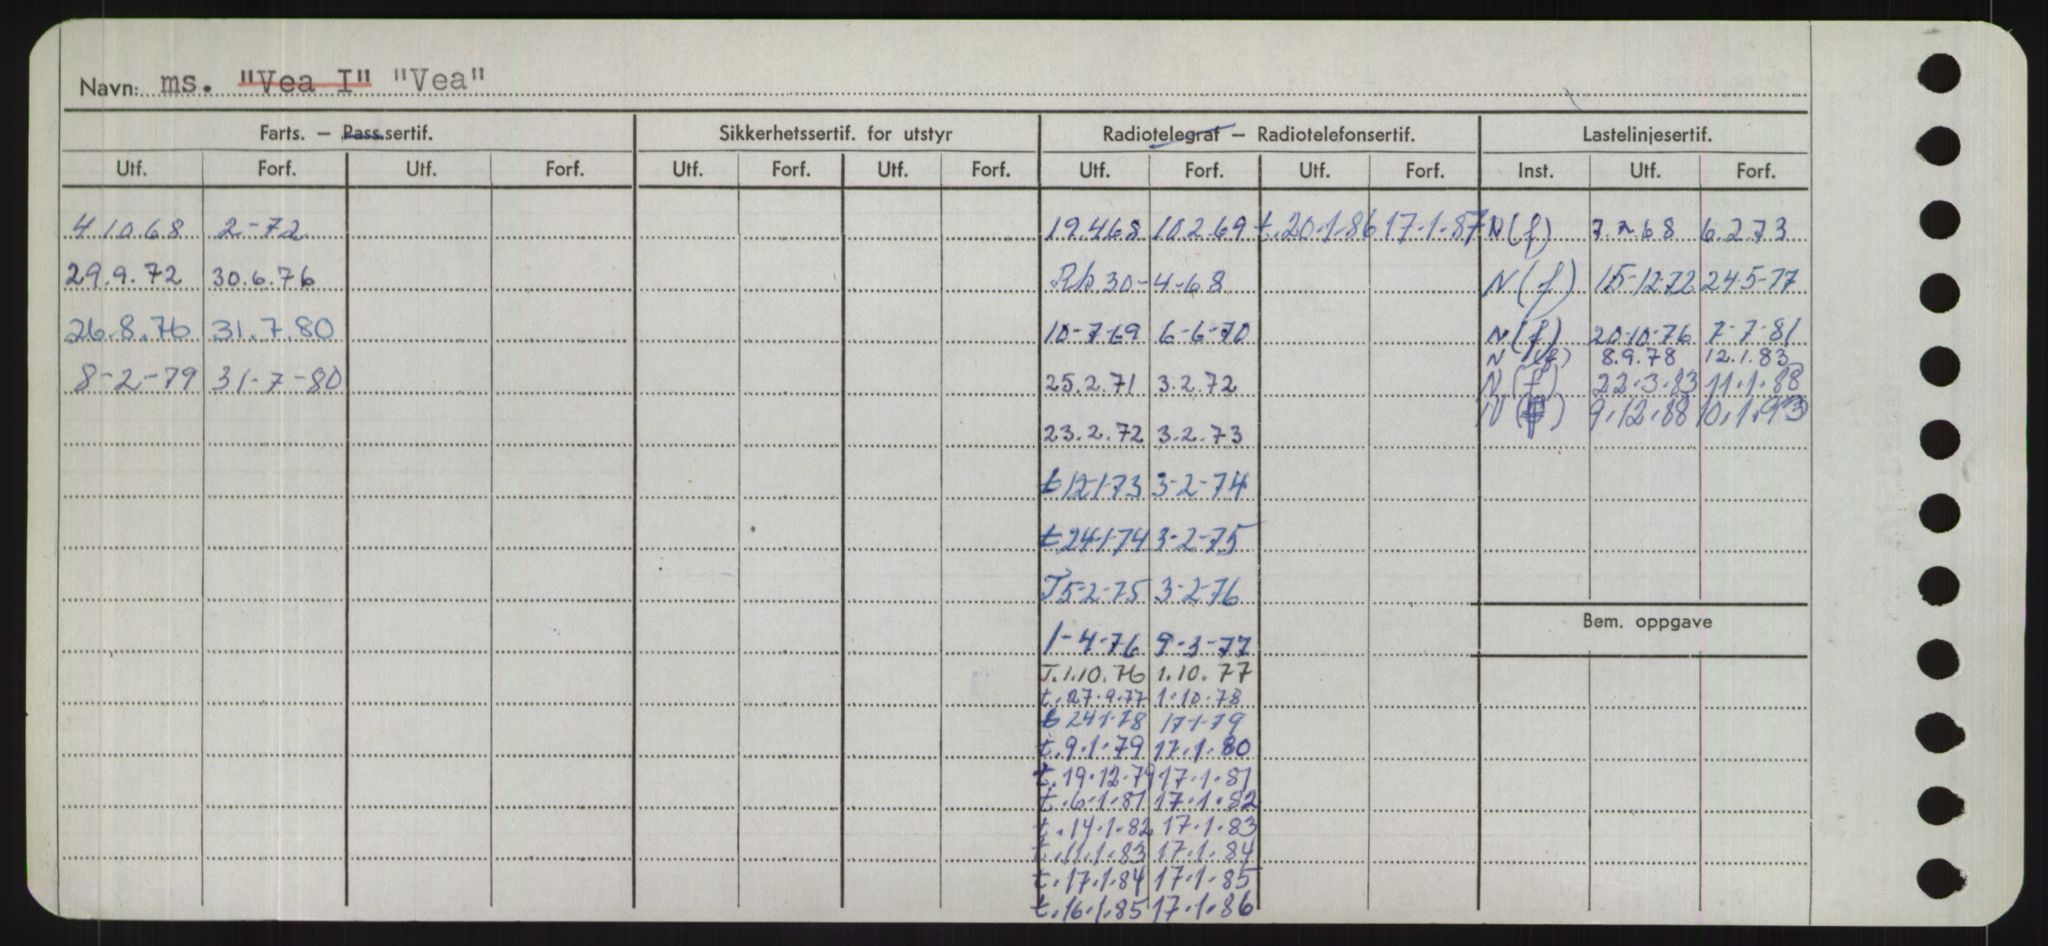 Navn: ms. "Vea I" "Vea"
Farts. – Pass.sertif. Sikkerhetssertif. for utstyr Radiotelegraf – Radiotelefonsertif. Lastelinjesertif.
Utf. Forf. Utf. Forf. Utf. Forf. Utf. Forf. Utf. Forf. Utf. Forf. Inst. Utf. Forf.
4 10.68 2-72 19.468 10 2.69 t.20.1.86 17.1.87 N(f) 7.2.68 6.2.73
29.9.72 30.6.76 Rb 30-4-68 N(f) 15-12-72 24-5-77
26.8.76 31.7.80 10-7-69 6-6-70 N(f) 20-10-76 7-7-81
N (f) 8.9.78 12.1.83
8-2-79 31-7-80 25.2.71 3.2.72 N(f) 22.3.83 11.1.88
N( ) 9.12.88 10.1.93
23.2.72 3.2.73
t 12-1-73 3-2-74
t 24-1-74 3-2-75
T 5-2-75 3-2-76
Bem. oppgave
1-4-76 9-3-77
T.1.10.76 1.10.77
t.27.9.77 1.10.78
t 24-1-78 17-1-79
t.9.1.79 17.1.80
t.19.12.79 17.1.81
t.6.1.81 17.1.82
t.14.1.82 17.1.83
t.11.1.83 17.1.84
t.17.1.84 17.1.85
t.16.1.85 17.1.86